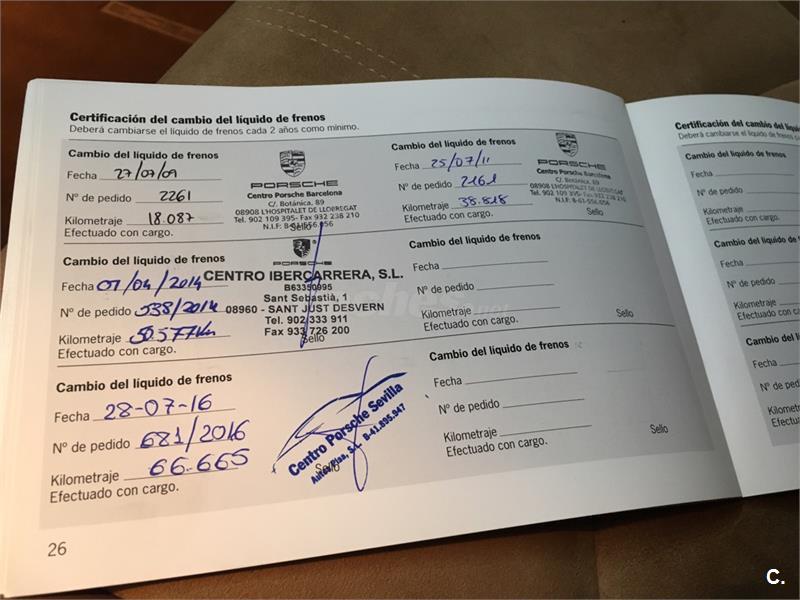 Certificación del cambio del líquido de frenos
Deberá cambiarse el líquido de frenos cada 2 años como mínimo.
Cambio del líquido de frenos
Fecha 27/07/09
Nº de pedido 2261
Kilometraje 18.087
Efectuado con cargo.
PORSCHE
Centro Porsche Barcelona
C/. Botánica, 89
08908 L'HOSPITALET DE LLOBREGAT
Tel. 902 109 395- Fax 932 238 210
N.I.F: B-61-556.056
Sello
Cambio del líquido de frenos
Fecha 25/07/11
Nº de pedido 2161
Kilometraje 38.818
Efectuado con cargo.
PORSCHE
Centro Porsche Barcelona
C/. Botánica, 89
08908 L'HOSPITALET DE LLOBREGAT
Tel. 902 109 395- Fax 932 238 210
N.I.F: B-61-556.056
Sello
Cambio del líquido de frenos
Fecha 01/04/2014
Nº de pedido 538/2014
Kilometraje 50.577Km
Efectuado con cargo.
PORSCHE
CENTRO IBERCARRERA, S.L.
B63350995
Sant Sebastià, 1
08960 - SANT JUST DESVERN
Tel. 902 333 911
Fax 933 726 200
Sello
Cambio del líquido de frenos
Fecha
Nº de pedido
Kilometraje
Efectuado con cargo.
Sello
Cambio del líquido de frenos
Fecha 28-07-16
Nº de pedido 681/2016
Kilometraje 66.665
Efectuado con cargo.
Centro Porsche Sevilla
S.L. B-41.895.947
Sello
Cambio del líquido de frenos
Fecha
Nº de pedido
Kilometraje
Efectuado con cargo.
Sello
26
Certificación del cambio del
Deberá cambiarse el líquido de frenos
Cambio del líquido de frenos
Fecha
Nº de pedido
Kilometraje
Efectuado con cargo.
Cambio del líquido de
Fecha
Nº de pedido
Kilometraje
Efectuado con cargo.
Cambio del
Fecha
Nº de pedido
Kilometraje
Efectuado con
C.